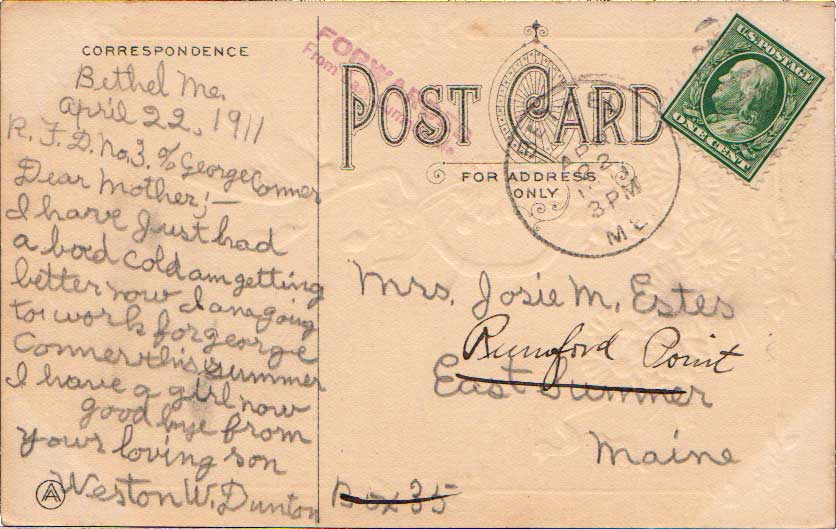 CORRESPONDENCE
Bethel Me.
April 22, 1911
R. F. D. No. 3. c/o George Conner
Dear Mother; —
I have Just had
a bad cold am getting
better now I am going
to work for george
Conner this summer
I have a girl now
good bye from
your loving son
Weston W. Dunton
A
FORWARDED
From
POST CARD
FOR ADDRESS
ONLY
BETHEL
APR
22
3 PM
ME.
U.S. POSTAGE
ONE CENT
Mrs. Josie M. Estes
Rumford Point
East Sumner
Maine
Box 35